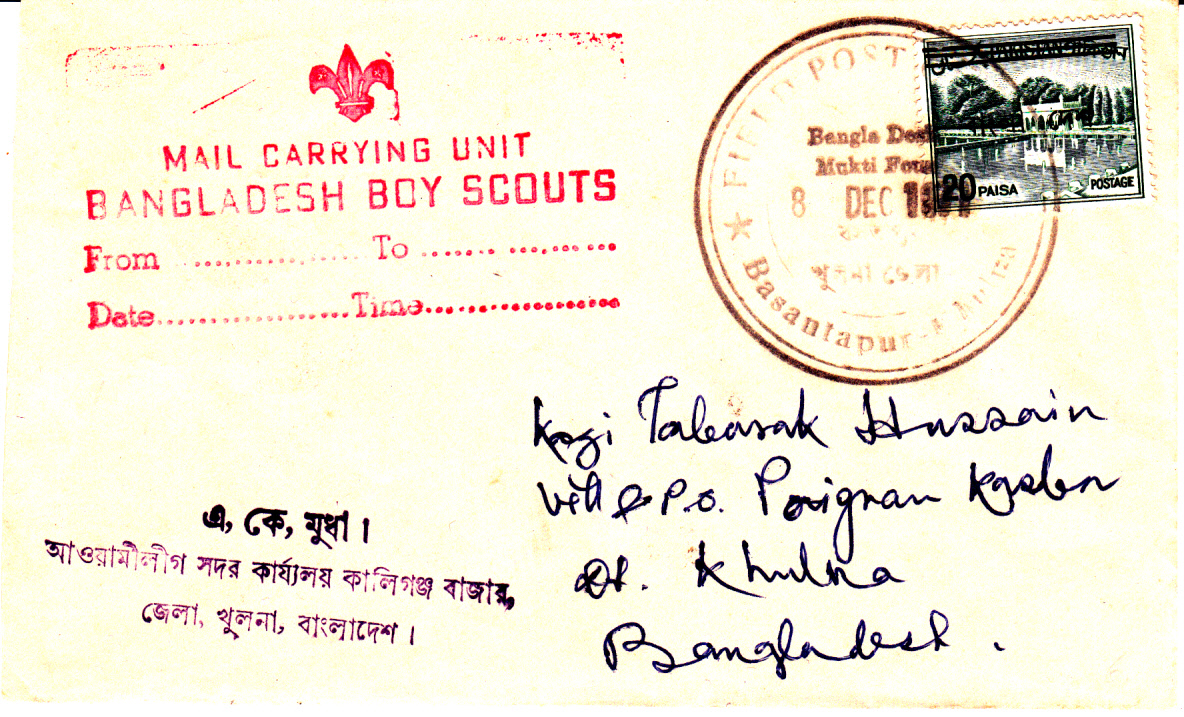 MAIL CARRYING UNIT
BANGLADESH BOY SCOUTS
From .................... To .......................
Date....................Time.......................
FIELD POST
Bangla
Mukti
8 DEC
খুলনা জেলা
Basantapur
PAKISTAN
20 PAISA
POSTAGE
Kazi Tabarak Hussain
Vill & P.O. Kasba
Dt. Khulna
Bangladesh.
এ, কে, মুধা।
আওয়ামীলীগ সদর কার্য্যালয় কালিগঞ্জ বাজার,
জেলা, খুলনা, বাংলাদেশ।